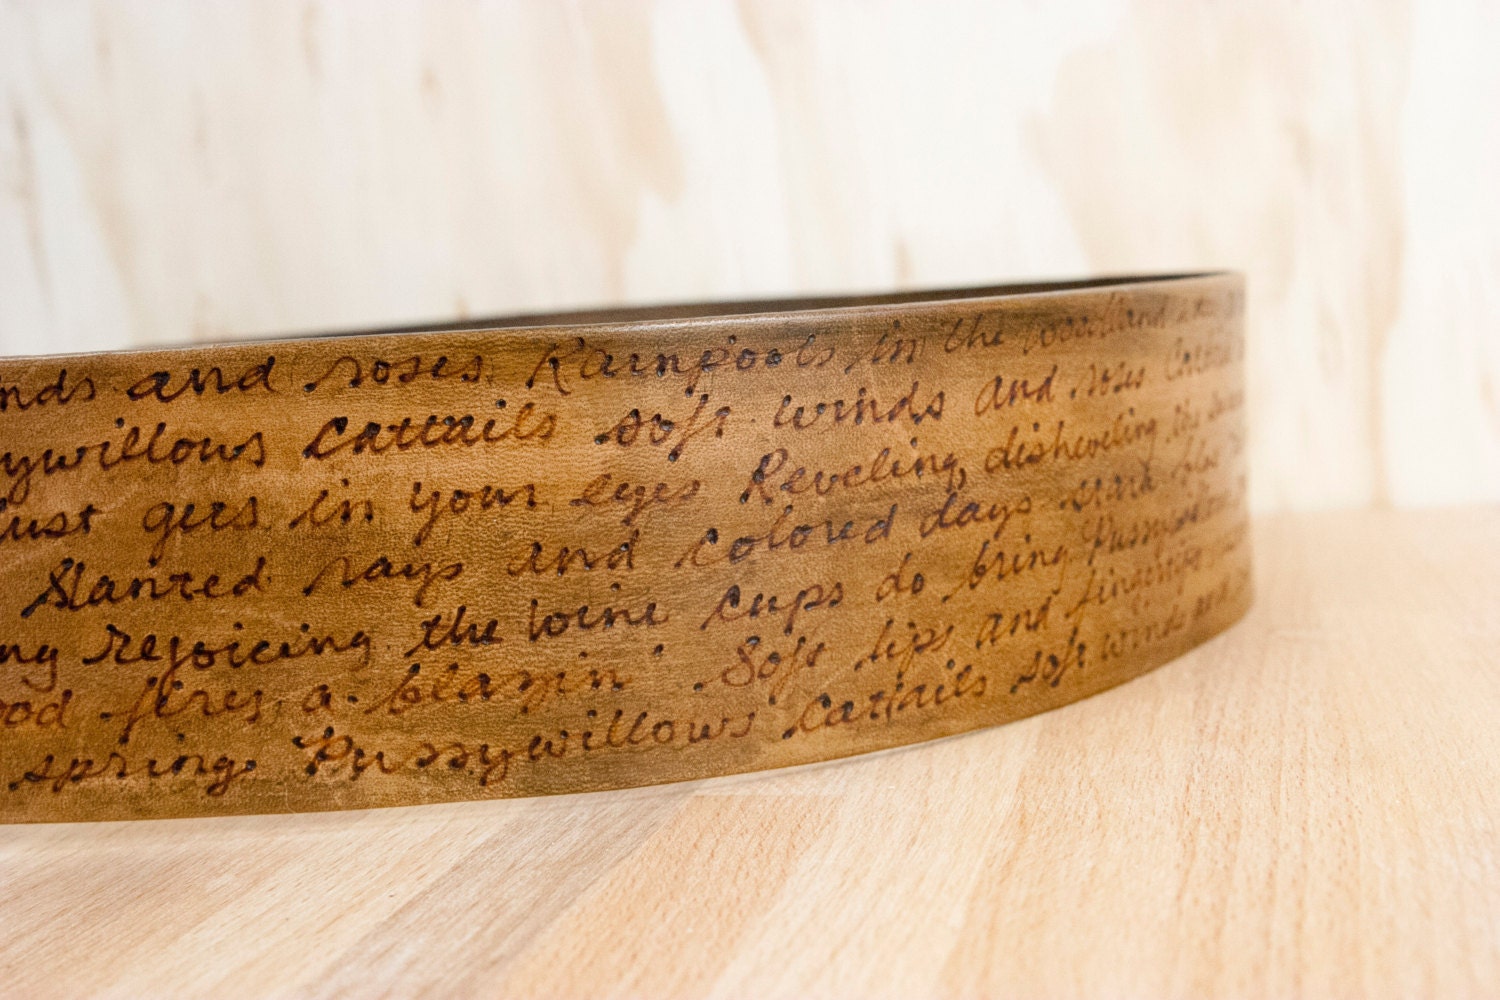 nds and roses Rainpools in the woodland
ywillows cattails soft winds and roses
ust gets in your eyes Reveling, disheveling
Slanted rays and colored days stark blue
ng rejoicing the wine cups do bring Pussywillows
ood fires a-blazin' Soft lips and fingertips
spring Pussywillows cattails soft winds and